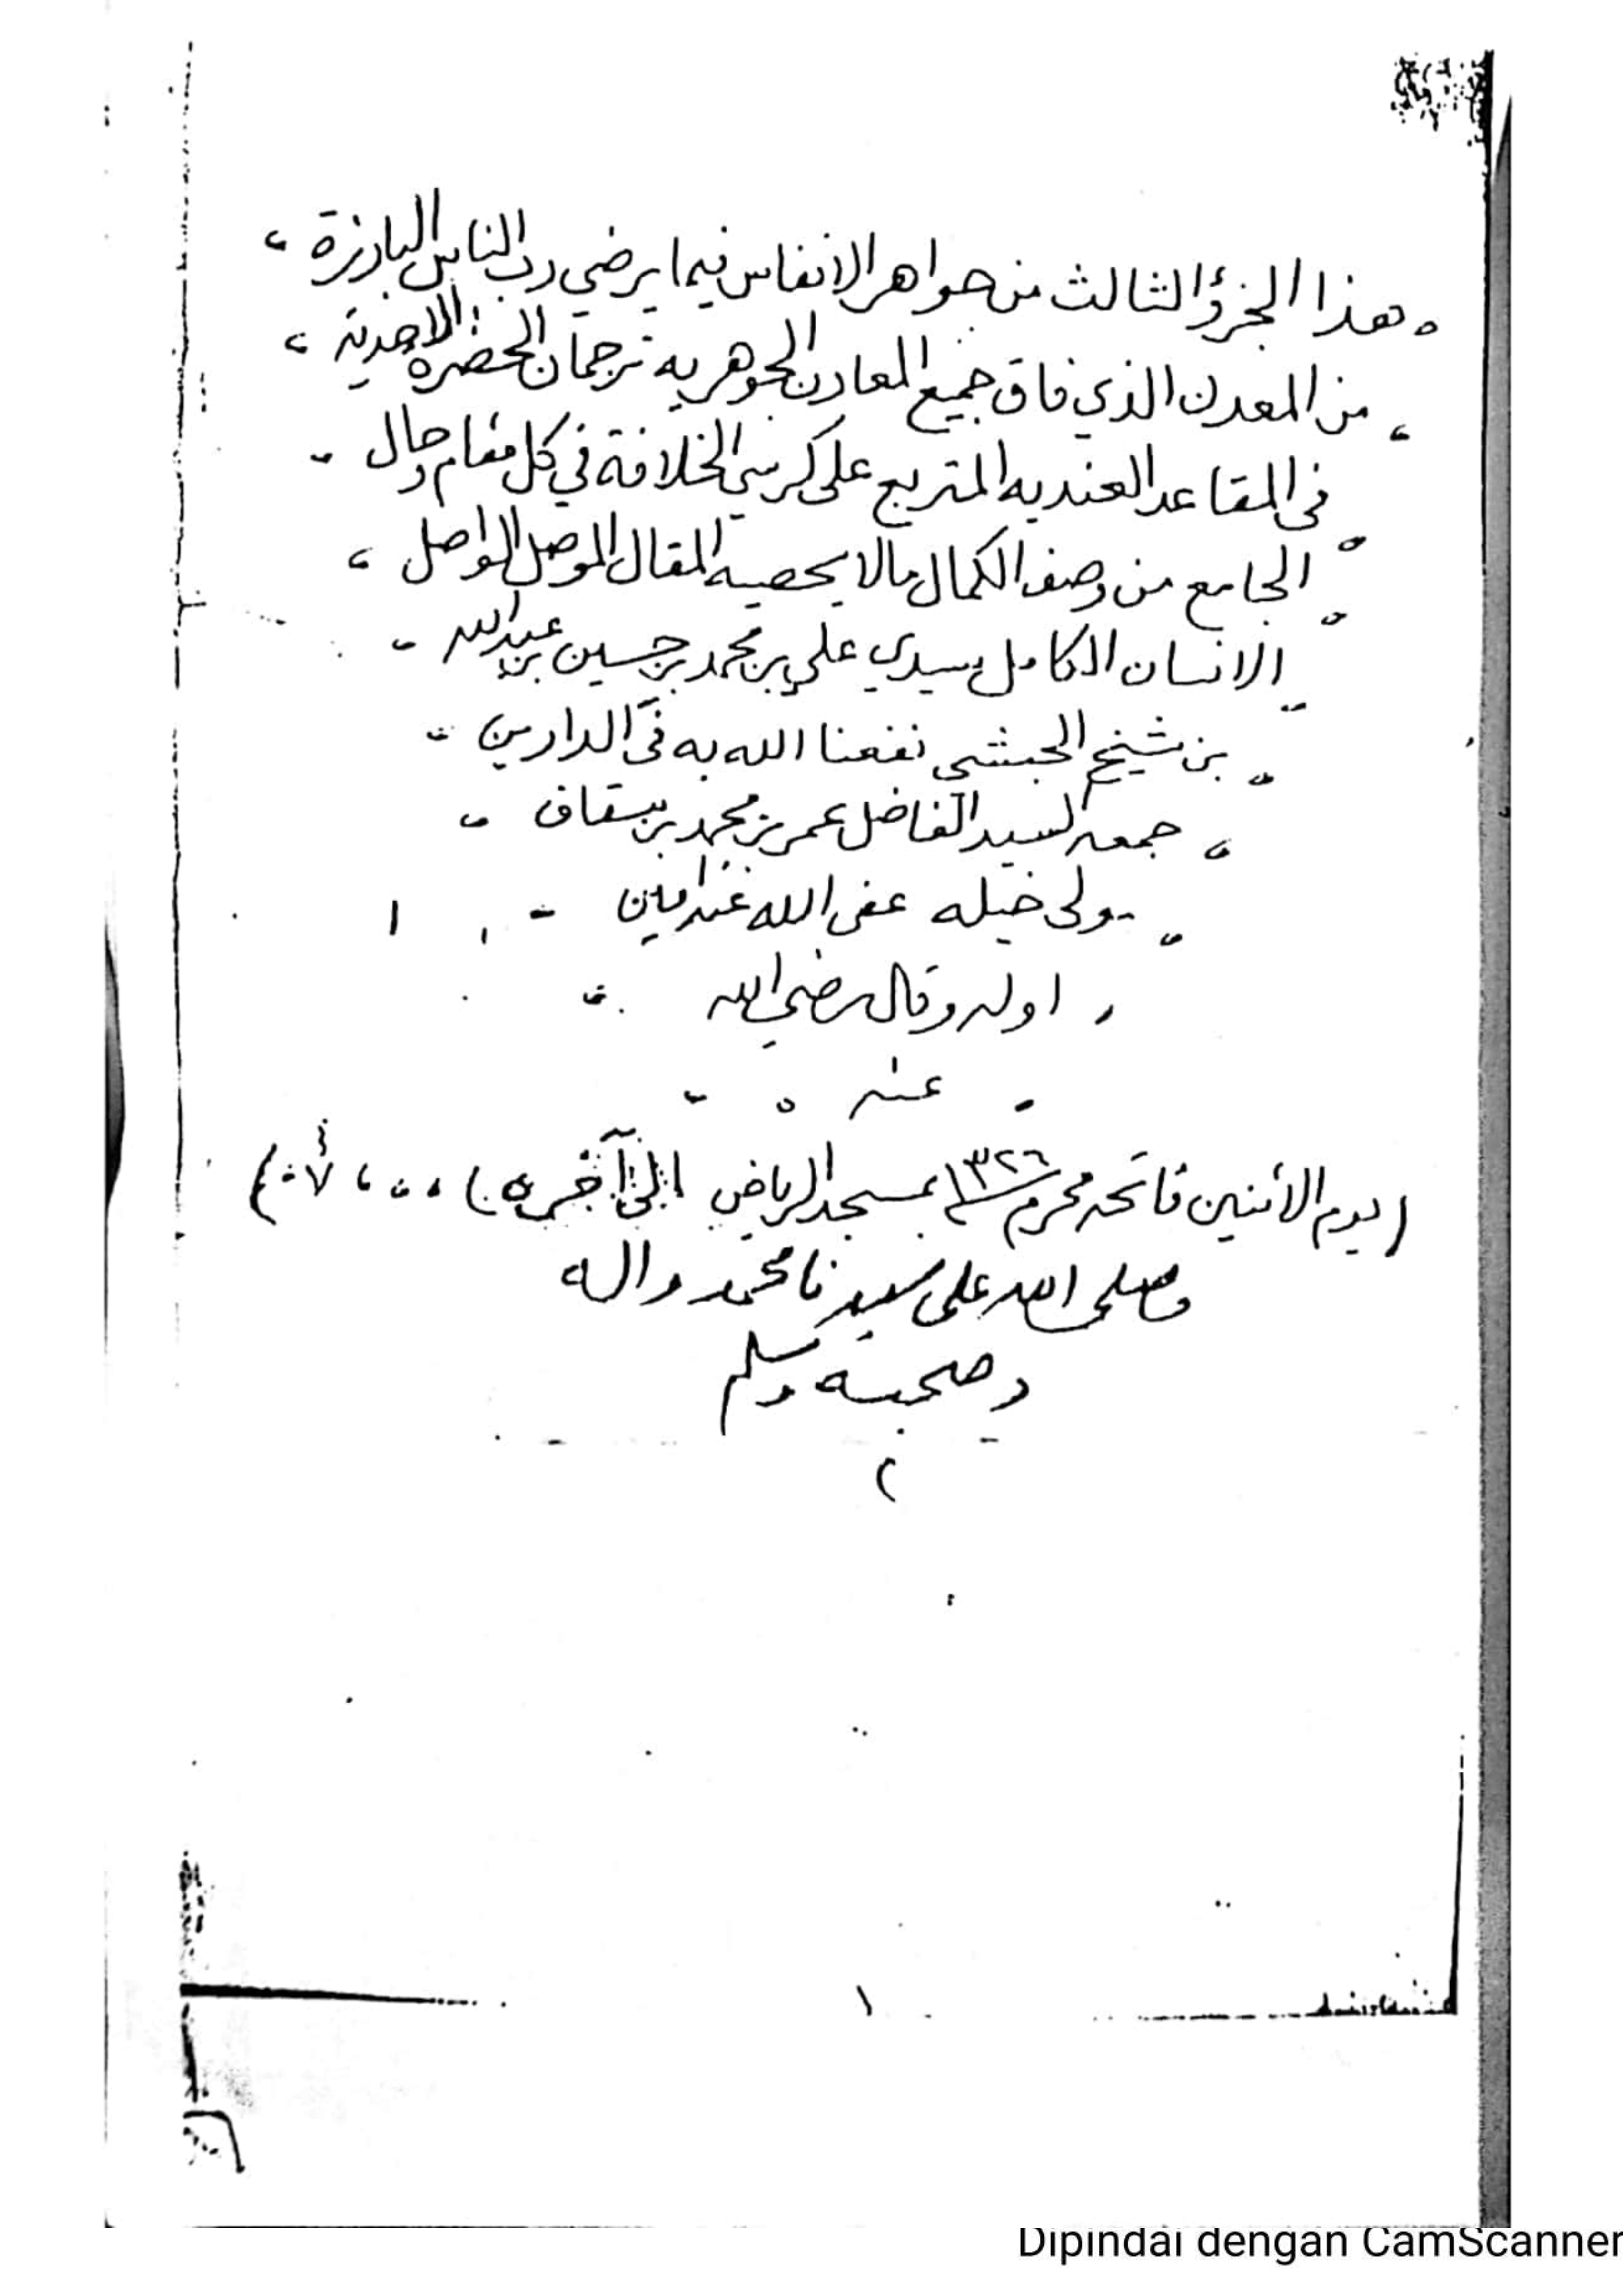 هذا الجزؤ الثالث من جواهر الانفاس فيما يرضي رب الناس البارزة
من المعدن الذي فاق جميع المعادن الجوهريه ترجمان الحضرة الاحدية
في المقاعد العنديه المتربع على كرسي الخلافة في كل مقام وحال
الجامع من وصف الكمال مالا يحصيه المقال الموصل الواصل
الانسان الكامل سيدي علي بن محمد بن حسين بن عبدالله
بن شيخ الحبشي نفعنا الله به في الدارين
جمعه السيد الفاضل عمر بن محمد بن سقاف
مولى خيله عفى الله عنه امين
اوله وقال رضي الله
عنه
(يوم الاثنين فاتحه محرم ١٣٢٦ بمسجد الرياض الى آخره)
وصلى الله على سيدنا محمد واله
وصحبه وسلم
١
Dipindai dengan CamScanner